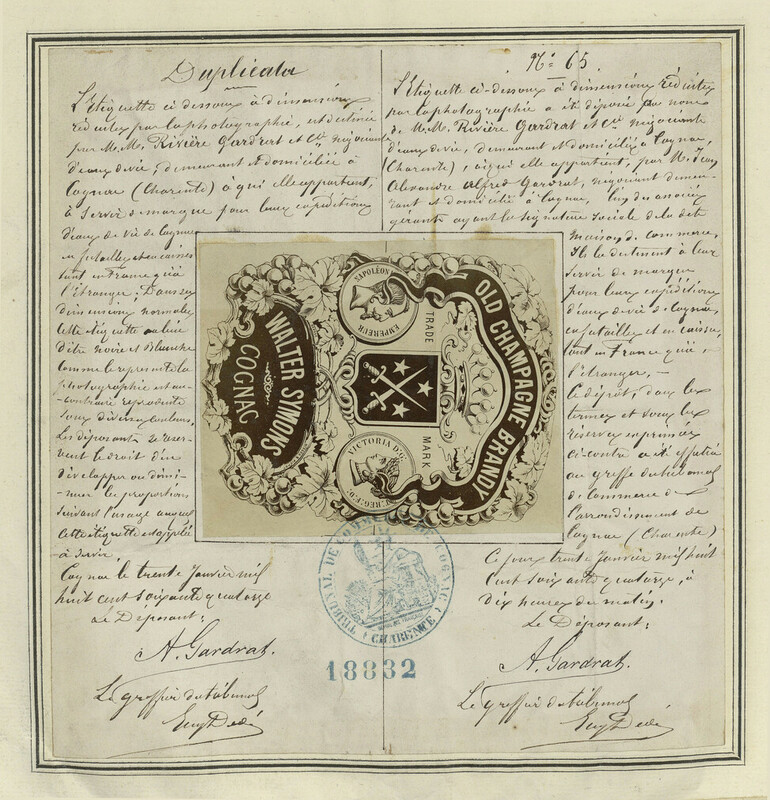 Duplicata
L'Etiquette ci dessous à dimensions
réduites par la photographie, est destinée
par M.M. Rivière Gardrat et Cie, négociants
d'eaux de vie, demeurant et domiciliés à
Cognac (Charente) à qui elle appartient,
à servir de marque pour leurs expéditions
d'eaux de vie de Cognac
en futailles et en caisses
tant en France qu'à
l'étranger; Dans ses
dimensions normales
cette étiquette au lieu
d'être Noire et Blanche
comme le représente la
photographie est au
contraire reproduite
sous diverses couleurs.
Les déposants se réser-
vent le droit d'en
développer ou dimi-
nuer les proportions
suivant l'usage auquel
cette étiquette est appelée
à servir.
Cognac le trente Janvier mil
huit cent soixante quatorze
Le Déposant:
A. Gardrat.
Le greffier du tribunal
No 65
L'Etiquette ci-dessous à dimensions réduites
par la photographie a été déposée au nom
de M.M. Rivière Gardrat et Cie négociants
d'eaux de vie, demeurant et domiciliés à Cognac,
(Charente), à qui elle appartient, par M. Jean
Alexandre Alfred Gardrat, négociant demeu-
rant et domicilié à Cognac, l'un des associés
gérants ayant la signature sociale de la dite
maison de commerce.
Ils la destinent à leur
servir de marque
pour leurs expéditions
d'eaux de vie de Cognac,
en futailles et en caisses,
tant en France qu'à
l'étranger.-
Ce dépôt, dans les
termes et sous les
réserves exprimées
ci-contre a été effectué
au greffe du tribunal
de Commerce de
l'arrondissement de
Cognac (Charente)
Ce jour trente Janvier mil huit
cent soixante quatorze, à
dix heures du matin.
Le Déposant:
A. Gardrat.
Le greffier du tribunal
OLD CHAMPAGNE BRANDY
NAPOLÉON
EMPEREUR
TRADE
MARK
VICTORIA D:G:
WALTER SYMONS
COGNAC
TRIBUNAL DE COMMERCE DE COGNAC
CHARENTE
18832